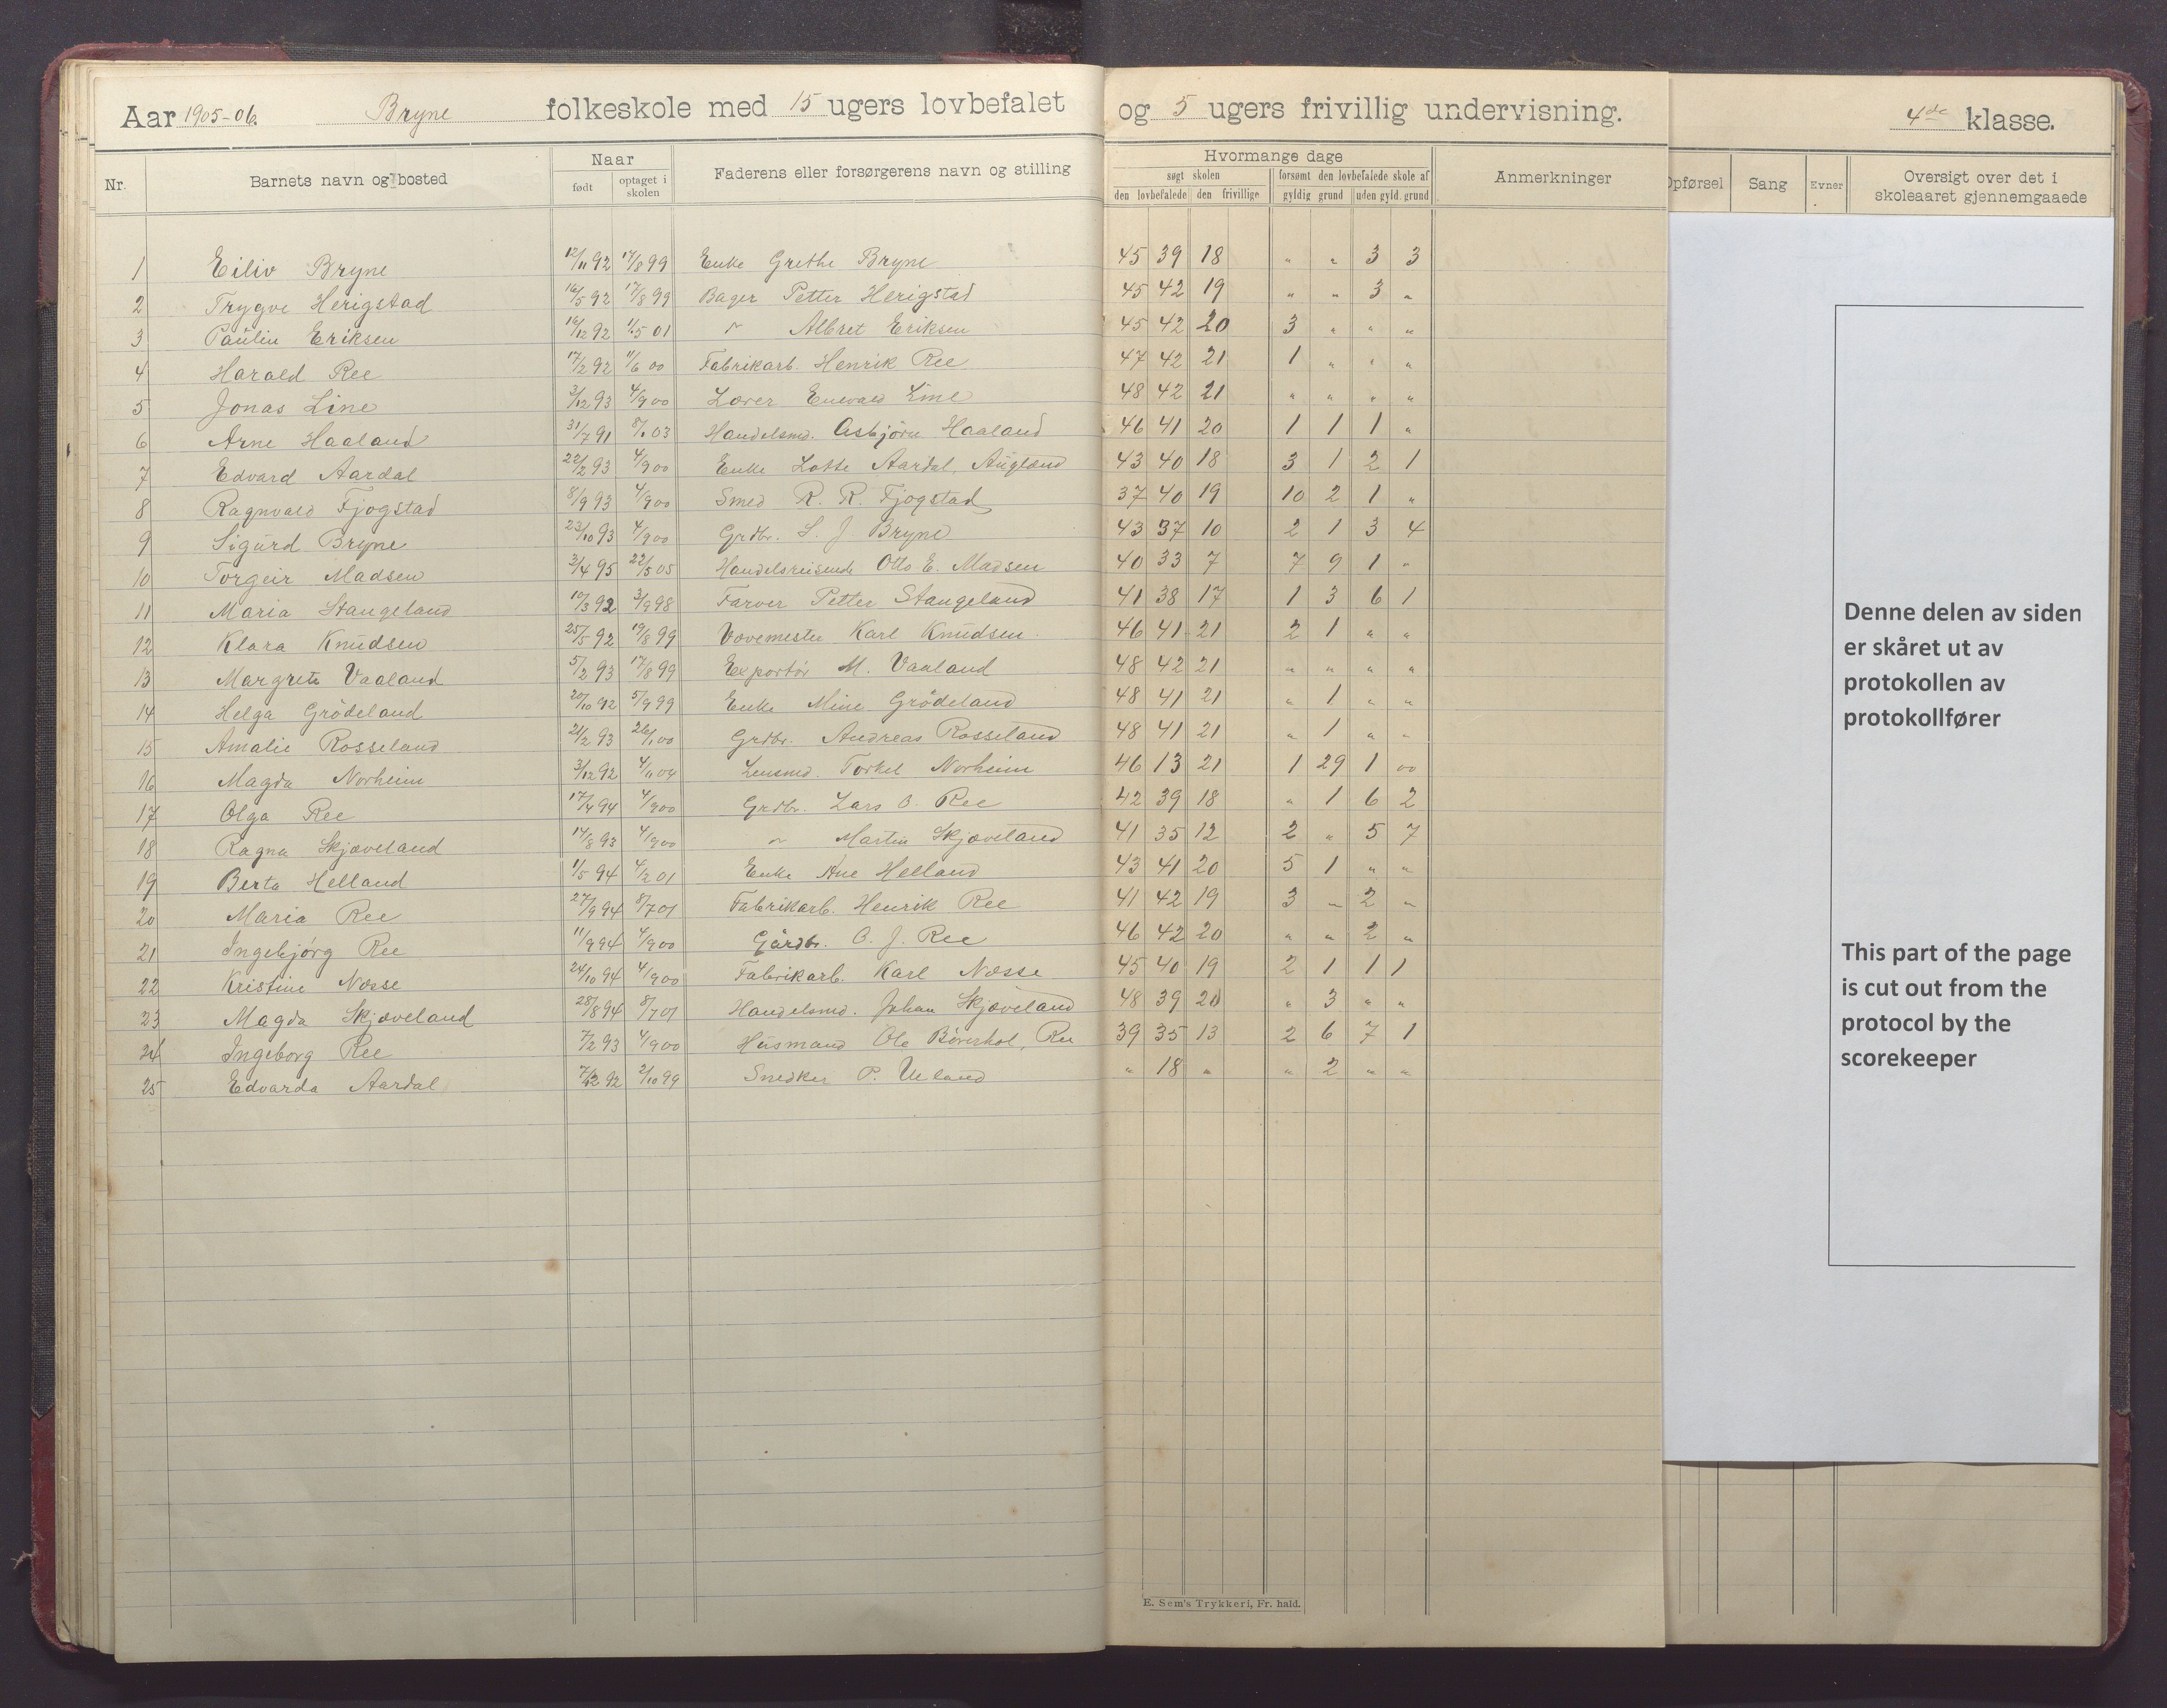 Aar 1905-06. Bryne folkeskole med 15 ugers lovbefalet og 5 ugers frivillig undervisning. 4de klasse.
Nr. Barnets navn og bosted Naar født optaget i skolen Faderens eller forsørgerens navn og stilling Hvormange dage søgt skolen den lovbefalede den frivillige forsømt den lovbefalede skole af gyldig grund uden gyld. grund Anmerkninger Opførsel Sang Evner Oversigt over det i skoleaaret gjennemgaaede
1 Eiliv Bryne 12/11 92 17/8 99 Enke Grethe Bryne 45 39 18 " " 3 3
2 Trygve Herigstad 16/5 92 17/8 99 Bager Petter Herigstad 45 42 19 " " 3 "
3 Paulin Eriksen 16/12 92 1/5 01 " Albret Eriksen 45 42 20 3 " " "
4 Harald Ree 17/2 92 11/6 00 Fabrikarb. Henrik Ree 47 42 21 1 " " "
5 Jonas Line 3/12 93 4/9 00 Lærer Enevald Line 48 42 21 " " " "
6 Arne Haaland 31/7 91 8/1 03 Handelsmd. Asbjörn Haaland 46 41 20 1 1 1 "
7 Edvard Aardal 22/2 93 4/9 00 Enke Lotte Aardal, Augland 43 40 18 3 1 2 1
8 Ragnvald Fjogstad 8/9 93 4/9 00 Smed R. R. Fjogstad 37 40 19 10 2 1 "
9 Sigurd Bryne 23/10 93 4/9 00 Grdbr. S. J. Bryne 43 37 10 2 1 3 4
10 Torgeir Madsen 3/4 95 22/5 05 Handelsreisende Otto E. Madsen 40 33 7 7 9 1 "
11 Maria Stangeland 10/3 92 3/9 98 Farver Petter Stangeland 41 38 17 1 3 6 1
12 Klara Knudsen 25/5 92 19/8 99 Vævemester Karl Knudsen 46 41 21 2 1 " "
13 Margrete Vaaland 5/2 93 17/8 99 Exportör M. Vaaland 48 42 21 " " " "
14 Helga Grödeland 20/10 92 5/9 99 Enke Mine Grödeland 48 41 21 " 1 " "
15 Amalie Rosseland 21/2 93 26/1 00 Grdbr. Andreas Rosseland 48 41 21 " 1 " "
16 Magda Norheim 3/12 92 4/11 04 Lensmd. Torkel Norheim 46 13 21 1 29 1 00
17 Olga Ree 17/4 94 4/9 00 Grdbr. Lars O. Ree 42 39 18 " 1 6 2
18 Ragna Skjæveland 14/8 93 4/9 00 " Martin Skjæveland 41 35 12 2 " 5 7
19 Berta Helland 1/5 94 4/2 01 Enke Ane Helland 43 41 20 5 1 " "
20 Maria Ree 27/9 94 8/7 01 Fabrikarb. Henrik Ree 41 42 19 3 " 2 "
21 Ingebjörg Ree 11/9 94 4/9 00 Gårdbr. O. J. Ree 46 42 20 " " 2 "
22 Kristine Næsse 24/10 94 4/9 00 Fabrikarb. Karl Næsse 45 40 19 2 1 1 1
23 Magda Skjæveland 28/8 94 8/7 01 Handelsmd. Johan Skjæveland 48 39 20 " 3 " "
24 Ingeborg Ree 7/2 93 4/9 00 Husmand Ole Ree 39 35 13 2 6 7 1
25 Edvarda Aardal 7/12 92 2/10 99 Snedker P. Ueland " 18 " " 2 " "
E. Sem's Trykkeri, Fr. hald.
Denne delen av siden
er skåret ut av
protokollen av
protokollfører
This part of the page
is cut out from the
protocol by the
scorekeeper